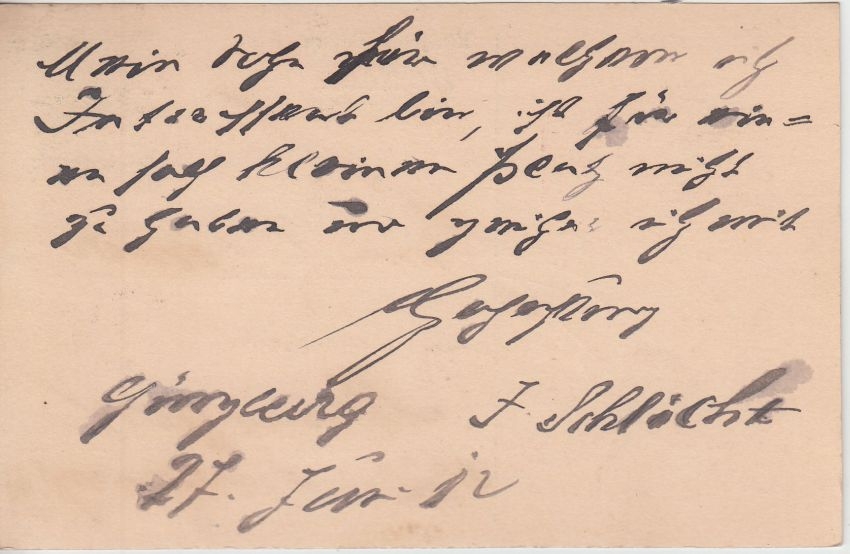 Mein Sohn für welchen ich
Interessent bin, ist für ein=
en so kleinen Platz nicht
zu haben u. zeige ich mit
Hochachtung
Günzburg J Schlächt
27. Jun. 12